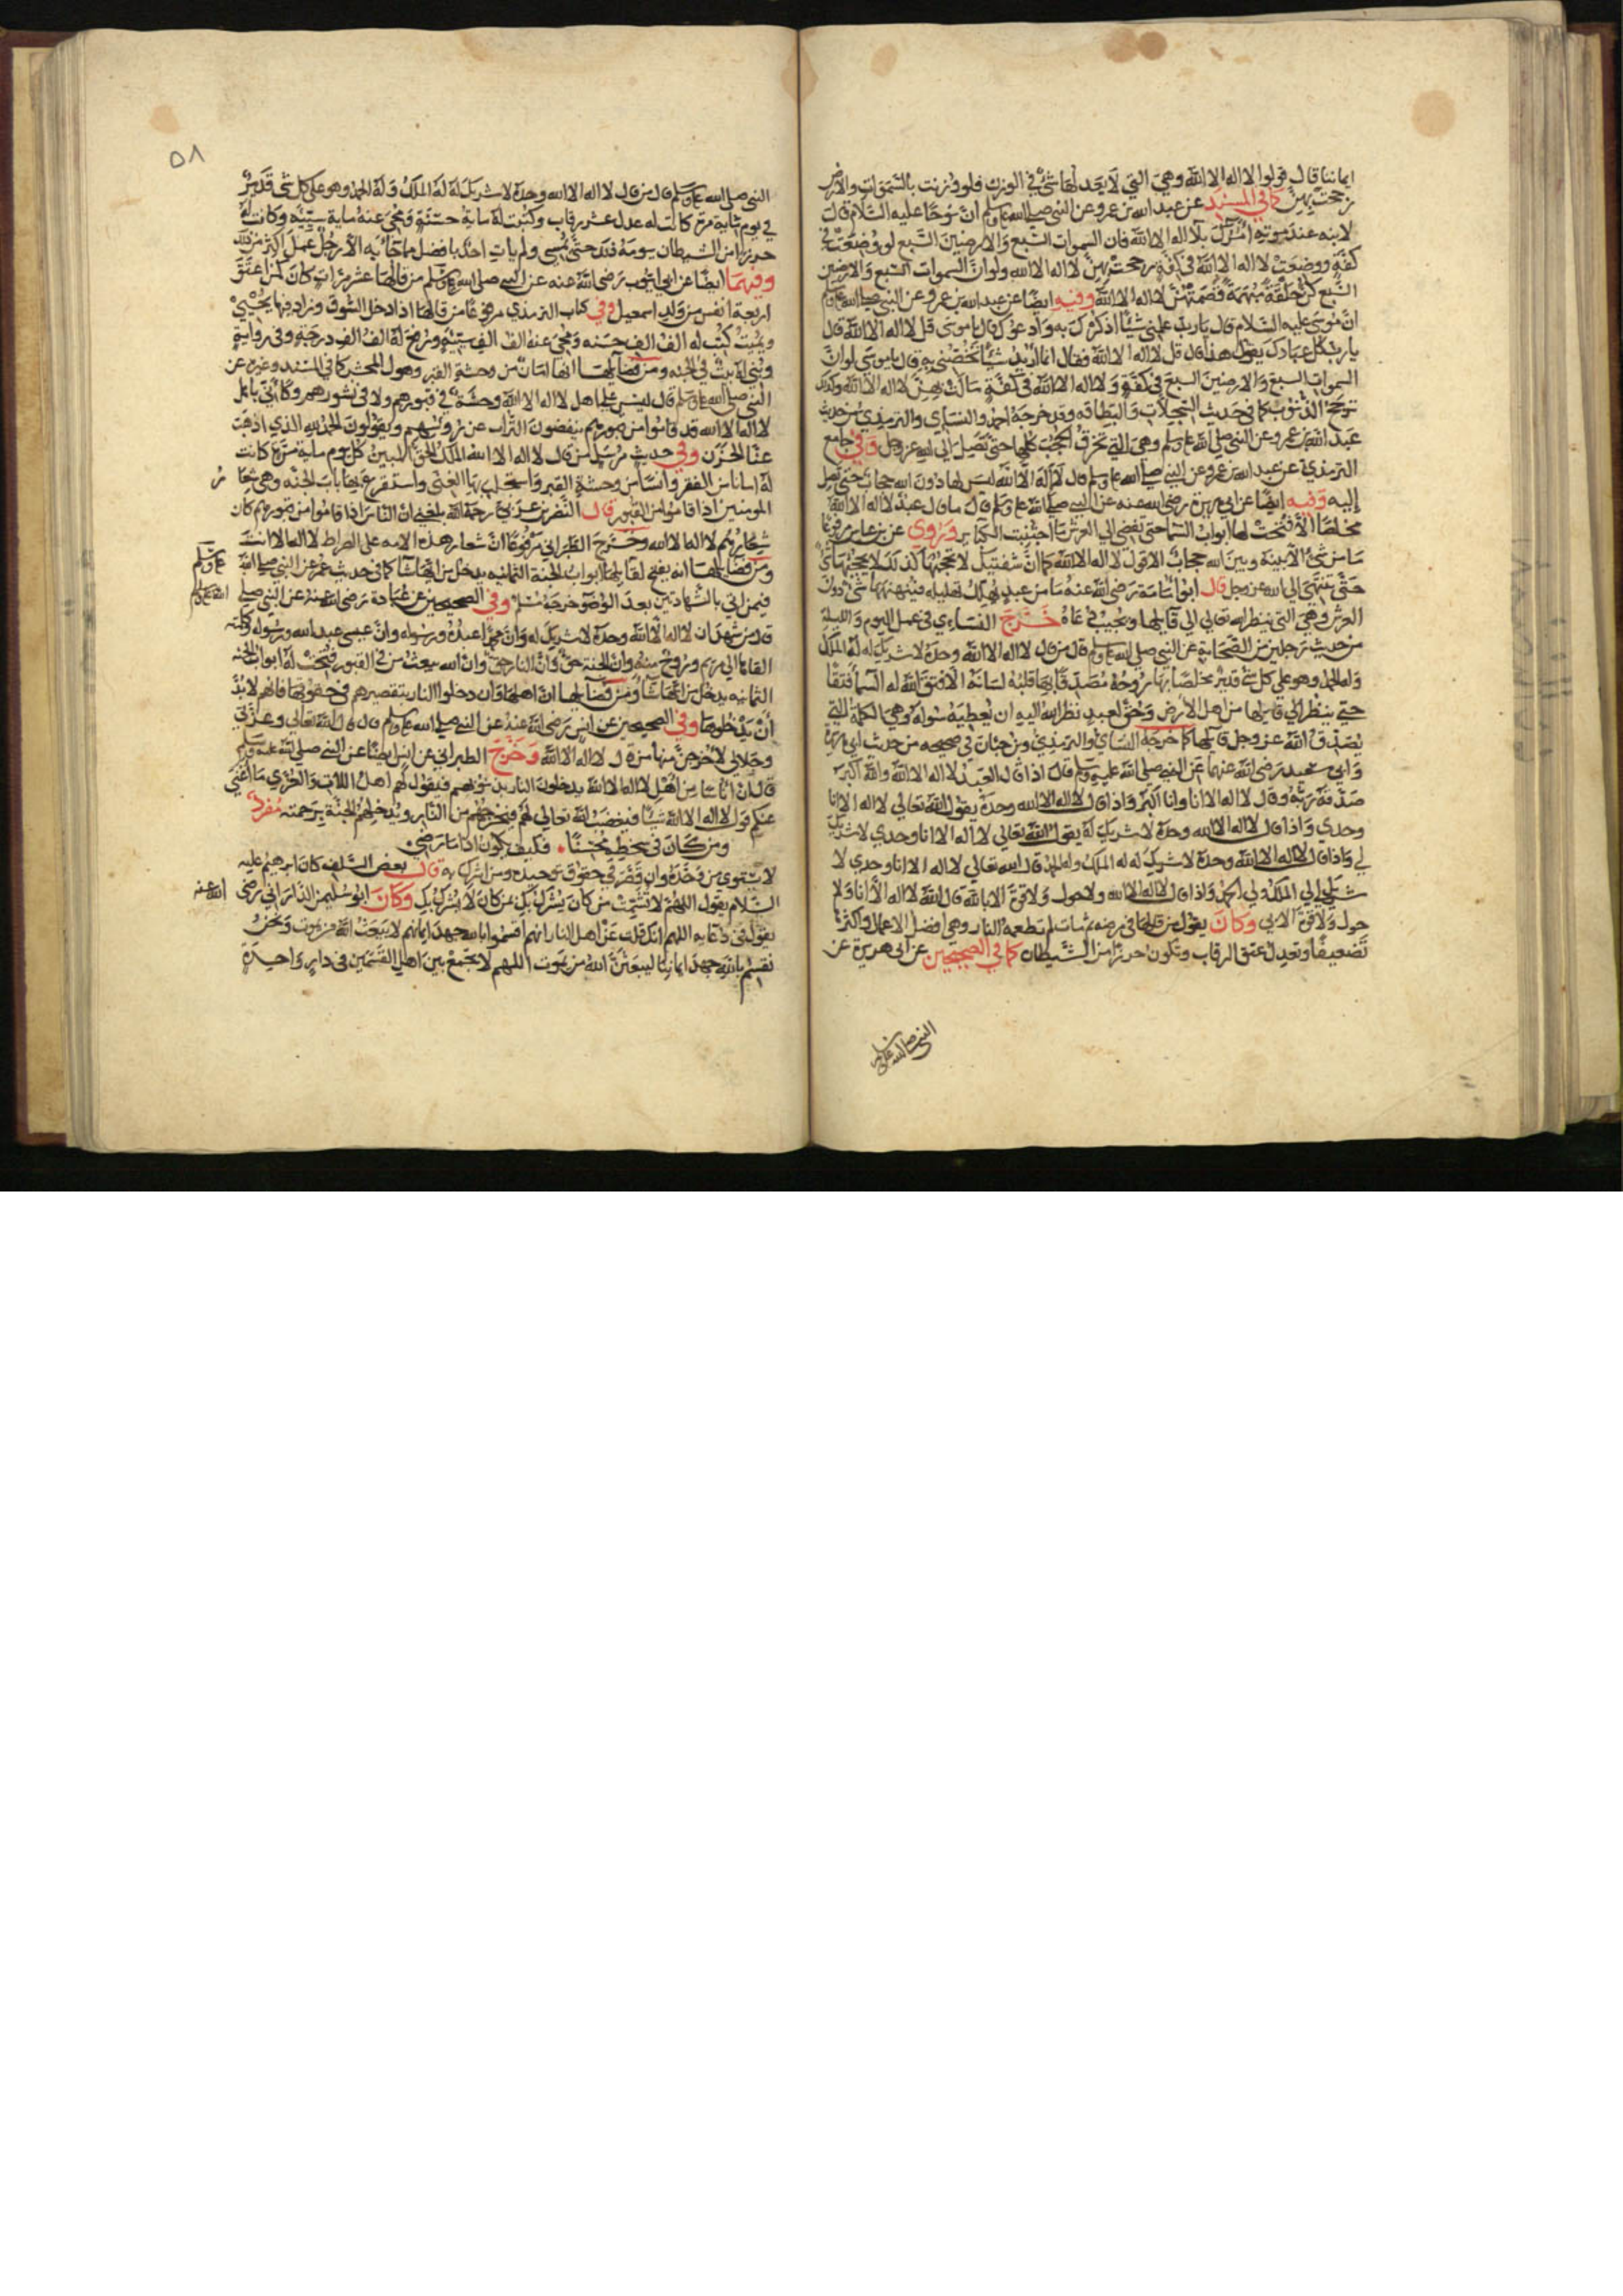 ايماننا قال قولوا لا اله الا الله وهي التي لا يعدلها شئ في الوزن فلو وزنت بالسموات والارض
رجحت بهن كما في المسند عن عبد الله بن عمرو عن النبي صلى الله عليه وسلم ان نوحا عليه السلام قال
لابنه عند موته آمرك بلا اله الا الله فان السموات السبع والارضين السبع لو وضعت في
كفة ووضعت لا اله الا الله في كفة رجحت بهن لا اله الا الله ولو ان السموات السبع والارضين
السبع كن حلقة مبهمة فصمتهن لا اله الا الله وفيه ايضا عن عبد الله بن عمرو عن النبي صلى الله عليه وسلم
ان موسى عليه السلام قال يا رب علمني شيئا اذكرك به وادعوك قال يا موسى قل لا اله الا الله قال
يا رب كل عبادك يقول هذا قال قل لا اله الا الله فقال انما اريد شيئا تخصني به قال يا موسى لو ان
السموات السبع والارضين السبع في كفة ولا اله الا الله في كفة مالت بهن لا اله الا الله وكذلك
ترجح الذنوب كما في حديث السجلات والبطاقه وقد خرجه احمد والنساي والترمذي من حديث
عبد الله بن عمرو عن النبي صلى الله عليه وسلم وهي التي تخرق الحجب كلها حتى تصل الى الله عز وجل وفي جامع
الترمذي عن عبد الله بن عمرو عن النبي صلى الله عليه وسلم قال لا اله الا الله ليس لها دون الله حجاب حتى تصل
إليه وفيه ايضا عن ابي هريرة رضي الله عنه عن النبي صلى الله عليه وسلم قال ما قال عبد لا اله الا الله
مخلصا الا فتحت لها ابواب السما حتى تفضي الي العرش ما اجتنبت الكباير ويروى عن بن عباس مرفوعا
ما من شئ الا بينه وبين الله حجاب الا قول لا اله الا الله كما ان شفتيك لا تحجبها كذلك لا يحجبها شئ
حتى تنتهي الي الله عز وجل قال ابو امامة رضي الله عنه ما من عبد يهلل تهليله فينهنهها شئ دون
العرش وهي التي ينظر الله تعالي الي قايلها ويجيب دعاه خرج النساءي في عمل اليوم والليلة
من حديث رجلين من الصحابة عن النبي صلى الله عليه وسلم قال من قال لا اله الا الله وحده لا شريك له له الملك
وله الحمد وهو علي كل شئ قدير مخلصا بها روحه مصدقا بها قلبه لسانه الا فتق الله له السما فتقا
حتى ينظر الي قايلها من اهل الارض وحق لعبد نظر الله اليه ان يعطيه سوله وهي الكلمة التي
يصدق الله عز وجل قايلها كما خرجه النساي والترمذي وبن حبان في صحيحه من حديث ابي هريرة
وابي سعيد رضي الله عنهما عن النبي صلى الله عليه وسلم قال اذا قال العبد لا اله الا الله والله اكبر
صدقه ربه وقال لا اله الا انا وانا اكبر واذا قال لا اله الا الله وحده يقول الله تعالي لا اله الا انا
وحدي واذا قال لا اله الا الله وحده لا شريك له يقول الله تعالي لا اله الا انا وحدي لا شريك
لي واذا قال لا اله الا الله وحده لا شريك له له الملك وله الحمد قال الله تعالي لا اله الا انا وحدي لا
شريك لي لي الملك ولي الحمد واذا قال لا اله الا الله ولا حول ولا قوة الا بالله قال الله لا اله الا انا ولا
حول ولا قوة الا بي وكان يقول من قالها في مرضه ثم مات لم تطعمه النار وهي افضل الاعمال واكثره
تضعيفا وتعدل عتق الرقاب وتكون حرزا من الشيطان كما في الصحيحين عن ابي هريرة عن
النبي صلى الله عليه وسلم
٥٨
النبي صلى الله عليه وسلم قال من قال لا اله الا الله وحده لا شريك له له الملك وله الحمد وهو على كل شئ قدير
في يوم مائة مرة كانت له عدل عشر رقاب وكتبت له ماية حسنة ومحي عنه ماية سيئة وكانت له
حرزا من الشيطان يومه ذلك حتى يمسى ولم يات احد بافضل مما جا به الا رجل عمل اكثر من ذلك
وفيهما ايضا عن ابي ايوب رضي الله عنه عن النبي صلى الله عليه وسلم من قالها عشر مرات كان كمن اعتق
اربعة انفس من ولد اسمعيل وفي كتاب الترمذي مرفوعا من قالها اذا دخل السوق وزاد فيها يحيي
ويميت كتب له الف الف حسنه ومحي عنه الف الف سيئه ورفع له الف الف درجة وفي رواية
وبني له بيت في الجنه ومن فضايلها انها امان من وحشة القبر وهول المحشر كما في المسند وغيره عن
النبي صلى الله عليه وسلم قال ليس على اهل لا اله الا الله وحشة في قبورهم ولا في نشورهم وكاني باهل
لا اله الا الله قد قاموا من قبورهم ينفضون التراب عن روسهم ويقولون الحمد لله الذي اذهب
عنا الحزن وفي حديث مرسل من قال لا اله الا الله الملك الحق المبين كل يوم ماية مرة كانت
له امانا من الفقر وانسا من وحشة القبر واستجلب بها الغنى واستقرع بها باب الجنه وهي شعار
المومنين اذا قاموا من القبور قال النضر بن عربي رحمه الله بلغني ان الناس اذا قاموا من قبورهم كان
شعارهم لا اله الا الله وخرج الطبراني مرفوعا ان شعار هذه الامه على الصراط لا اله الا انت
ومن فضايلها انه يفتح لقايلها ابواب الجنة الثمانيه يدخل من ايها شا كما في حديث عمر عن النبي صلى الله
عليه وسلم
فيمن اتى بالشهادتين بعد الوضو خرجه مسلم وفي الصحيحين عن عبادة رضي الله عنه عن النبي صلى
الله عليه وسلم
قال من شهد ان لا اله الا الله وحده لا شريك له وان محمدا عبده ورسوله وان عيسى عبد الله ورسوله وكلمته
القاها الي مريم وروح منه وان الجنة حق وان النار حق وان الله يبعث من في القبور فتحت له ابواب الجنه
الثمانيه يدخل من ايها شا ومن فضايلها ان اهلها وان دخلوا النار بتقصيرهم في حقوقها فانهم لا بد
أن يخرجوا منها وفي الصحيحين عن انس رضي الله عنه عن النبي صلى الله عليه وسلم قال قال الله تعالي وعزتي
وجلالي لاخرجن منها من قال لا اله الا الله وخرج الطبراني عن انس ايضا عن النبي صلى الله عليه وسلم
قال ان اناسا من اهل لا اله الا الله يدخلون النار بذنوبهم فيقول لهم اهل اللات والعزي ما اغنى
عنكم قول لا اله الا الله شيئا فيغضب الله تعالي لهم فيخرجهم من النار ويدخلهم الجنة برحمته مفرد
ومن كان في سخطه محسنا . فكيف يكون اذا ما رضي
لا يستوي من وحده وان قصر في حقوق توحيده ومن اشرك به قال بعض السلف كان ابرهيم عليه
السلام يقول اللهم لا تشمت من كان يشرك بك بمن كان لا يشرك بك وكان ابو سليمن الداراني رضي
الله عنه
يقول في دعايه اللهم انك قلت عن اهل النار انهم اقسموا بالله جهد ايمانهم لا يبعث الله من يموت ونحن
نقسم بالله جهد ايماننا ليبعثن الله من يموت اللهم لا تجمع بين اهل القسمين في دار واحدة